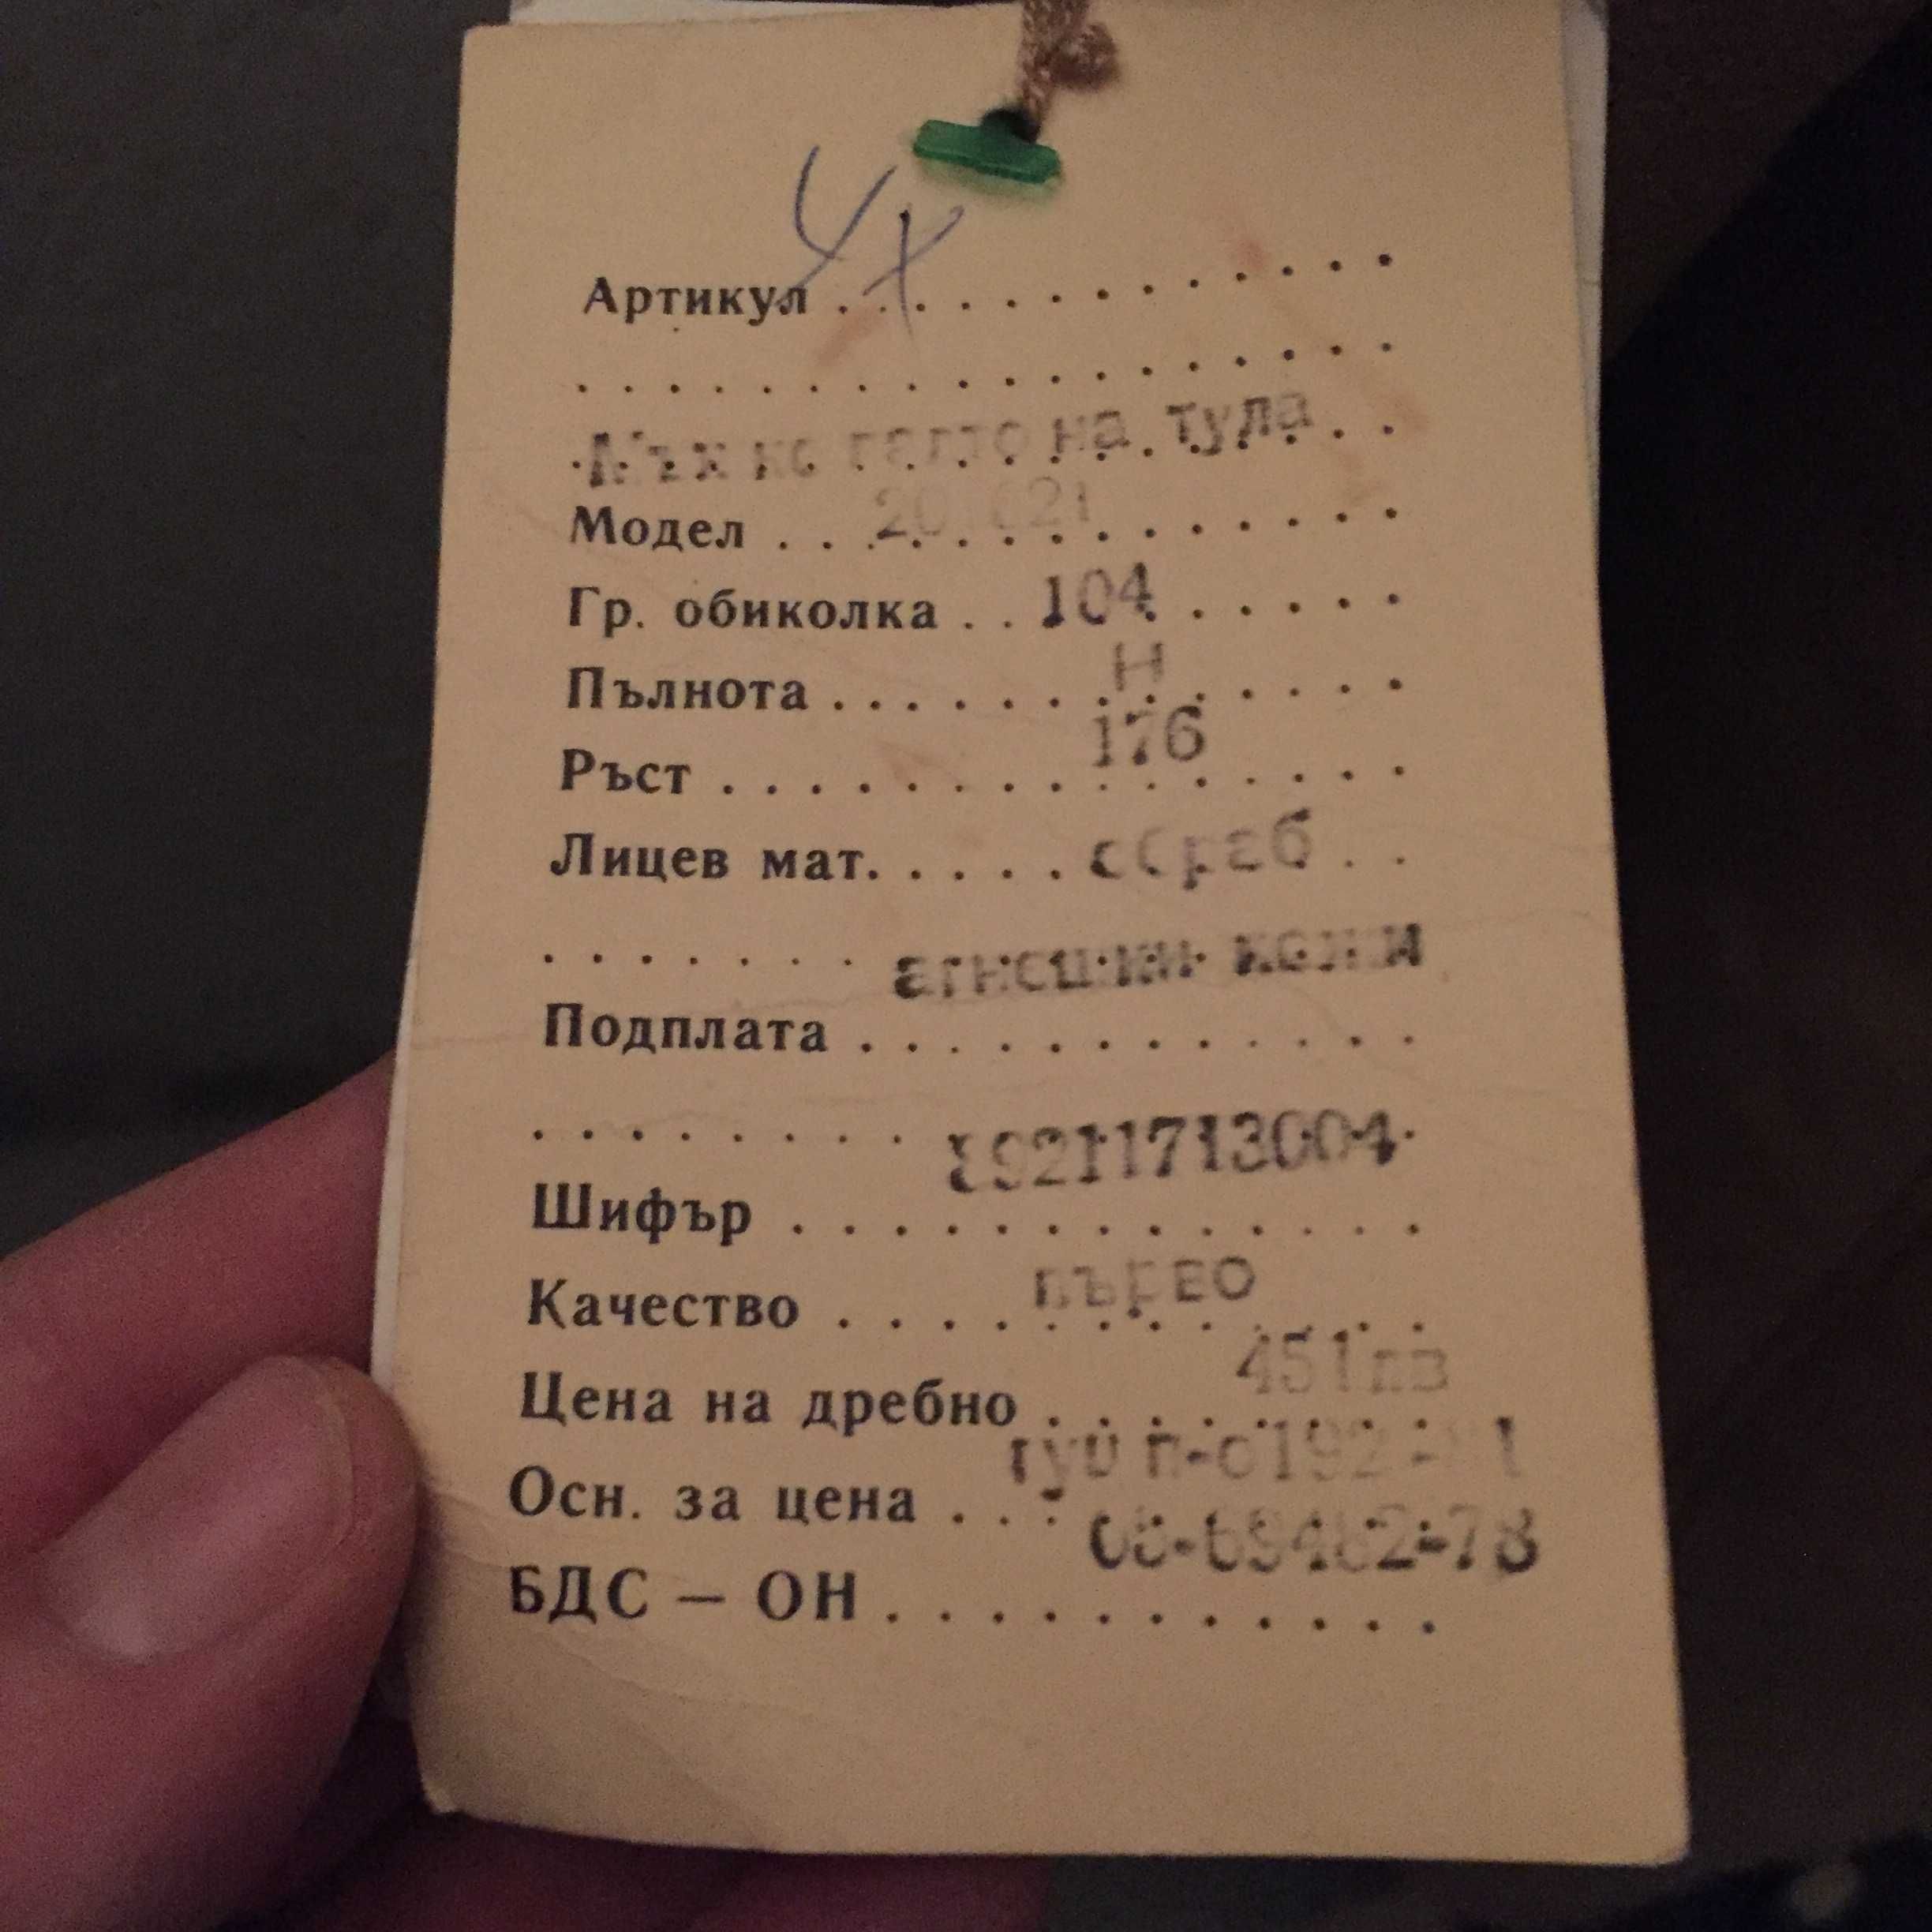 Артикул . . . . . . . . . . . .
Мъжко палто на тула
Модел . . . . . . . . . . . . .
Гр. обиколка . . 104 . . . . .
Пълнота . . . . . . Н . . . . .
Ръст . . . . . . . 176 . . . . .
Лицев мат. . . . . обраб . .
. . . . . . . агнешки кожи
Подплата . . . . . . . . . . . .
. . . . . . . . . 19211713004
Шифър . . . . . . . . . . . .
Качество . . . . първо
Цена на дребно . . . 451лв
Осн. за цена . . .
БДС — ОН . . . . . . . . . . .